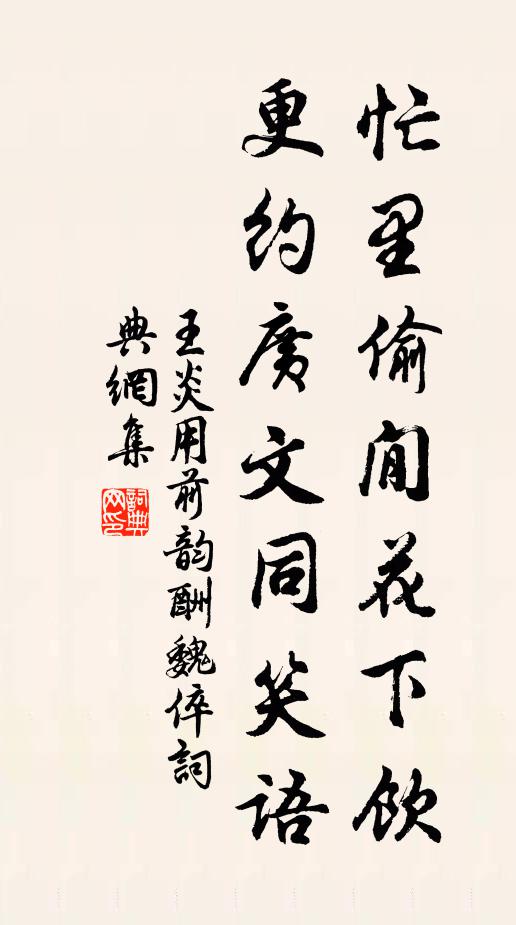 忙里偷闲花下饮
更约廣文同笑语
王炎用前韵酬魏倅詞
典網集
詞典网印